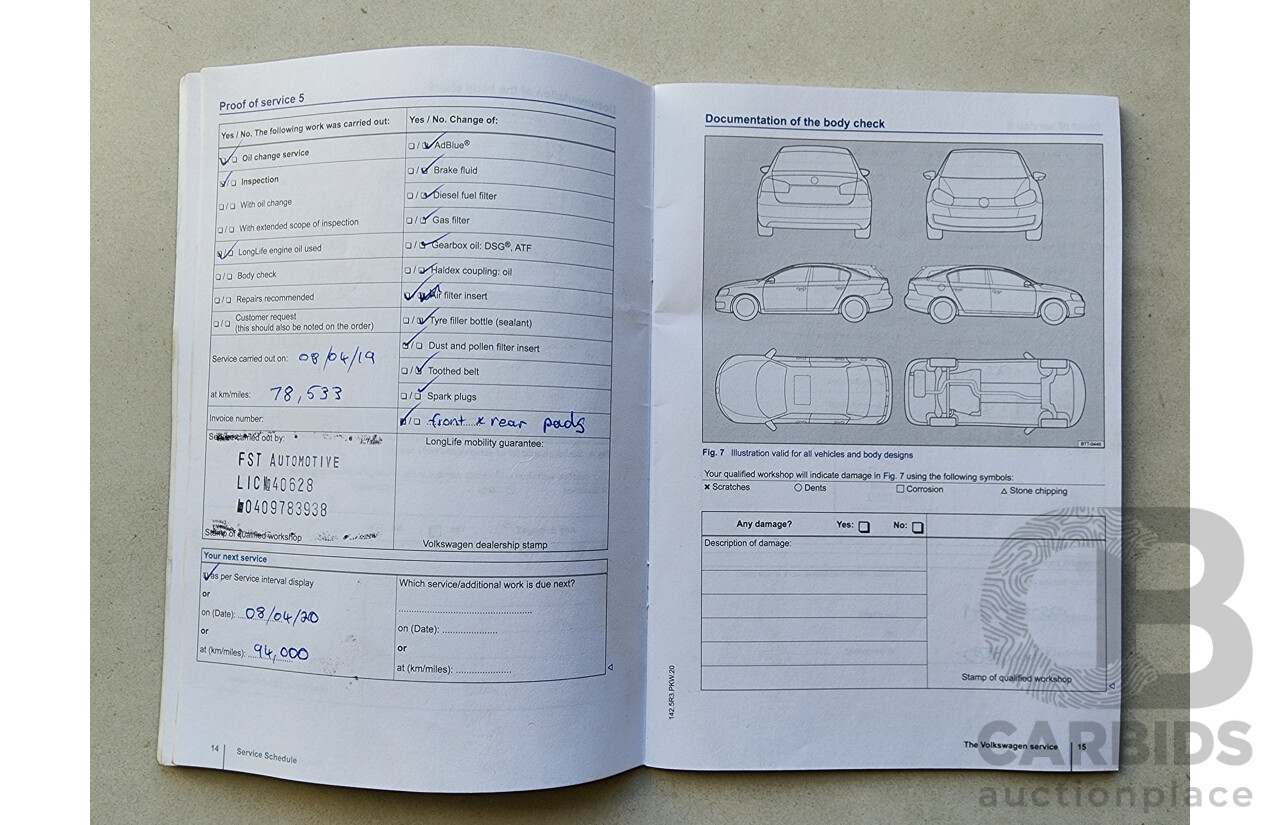 Proof of service 5
Yes / No. The following work was carried out:
✓/❑ Oil change service
✓/❑ Inspection
❑/❑ With oil change
❑/❑ With extended scope of inspection
✓/❑ LongLife engine oil used
❑/❑ Body check
❑/❑ Repairs recommended
❑/❑ Customer request
(this should also be noted on the order)
Service carried out on: 08/04/19
at km/miles: 78,533
Invoice number:
Service carried out by:
FST AUTOMOTIVE
LIC№40628
0409783938
Stamp of qualified workshop
Yes / No. Change of:
❑/✓ AdBlue®
❑/✓ Brake fluid
❑/✓ Diesel fuel filter
❑/✓ Gas filter
❑/✓ Gearbox oil: DSG®, ATF
❑/✓ Haldex coupling: oil
✓/❑ Air filter insert
❑/✓ Tyre filler bottle (sealant)
✓/❑ Dust and pollen filter insert
❑/✓ Toothed belt
❑/✓ Spark plugs
✓/❑ front x rear pads
LongLife mobility guarantee:
Volkswagen dealership stamp
Your next service
✓ as per Service interval display
or
on (Date): 08/04/20
or
at (km/miles): 94,000
Which service/additional work is due next?
on (Date): ....................
or
at (km/miles): ....................
14 Service Schedule
Documentation of the body check
BTT-0446
Fig. 7 Illustration valid for all vehicles and body designs
Your qualified workshop will indicate damage in Fig. 7 using the following symbols:
× Scratches ○ Dents □ Corrosion △ Stone chipping
Any damage? Yes: ❑ No: ❑
Description of damage:
Stamp of qualified workshop
142.5R3.PKW.20
The Volkswagen service 15
CARBIDS
auctionplace